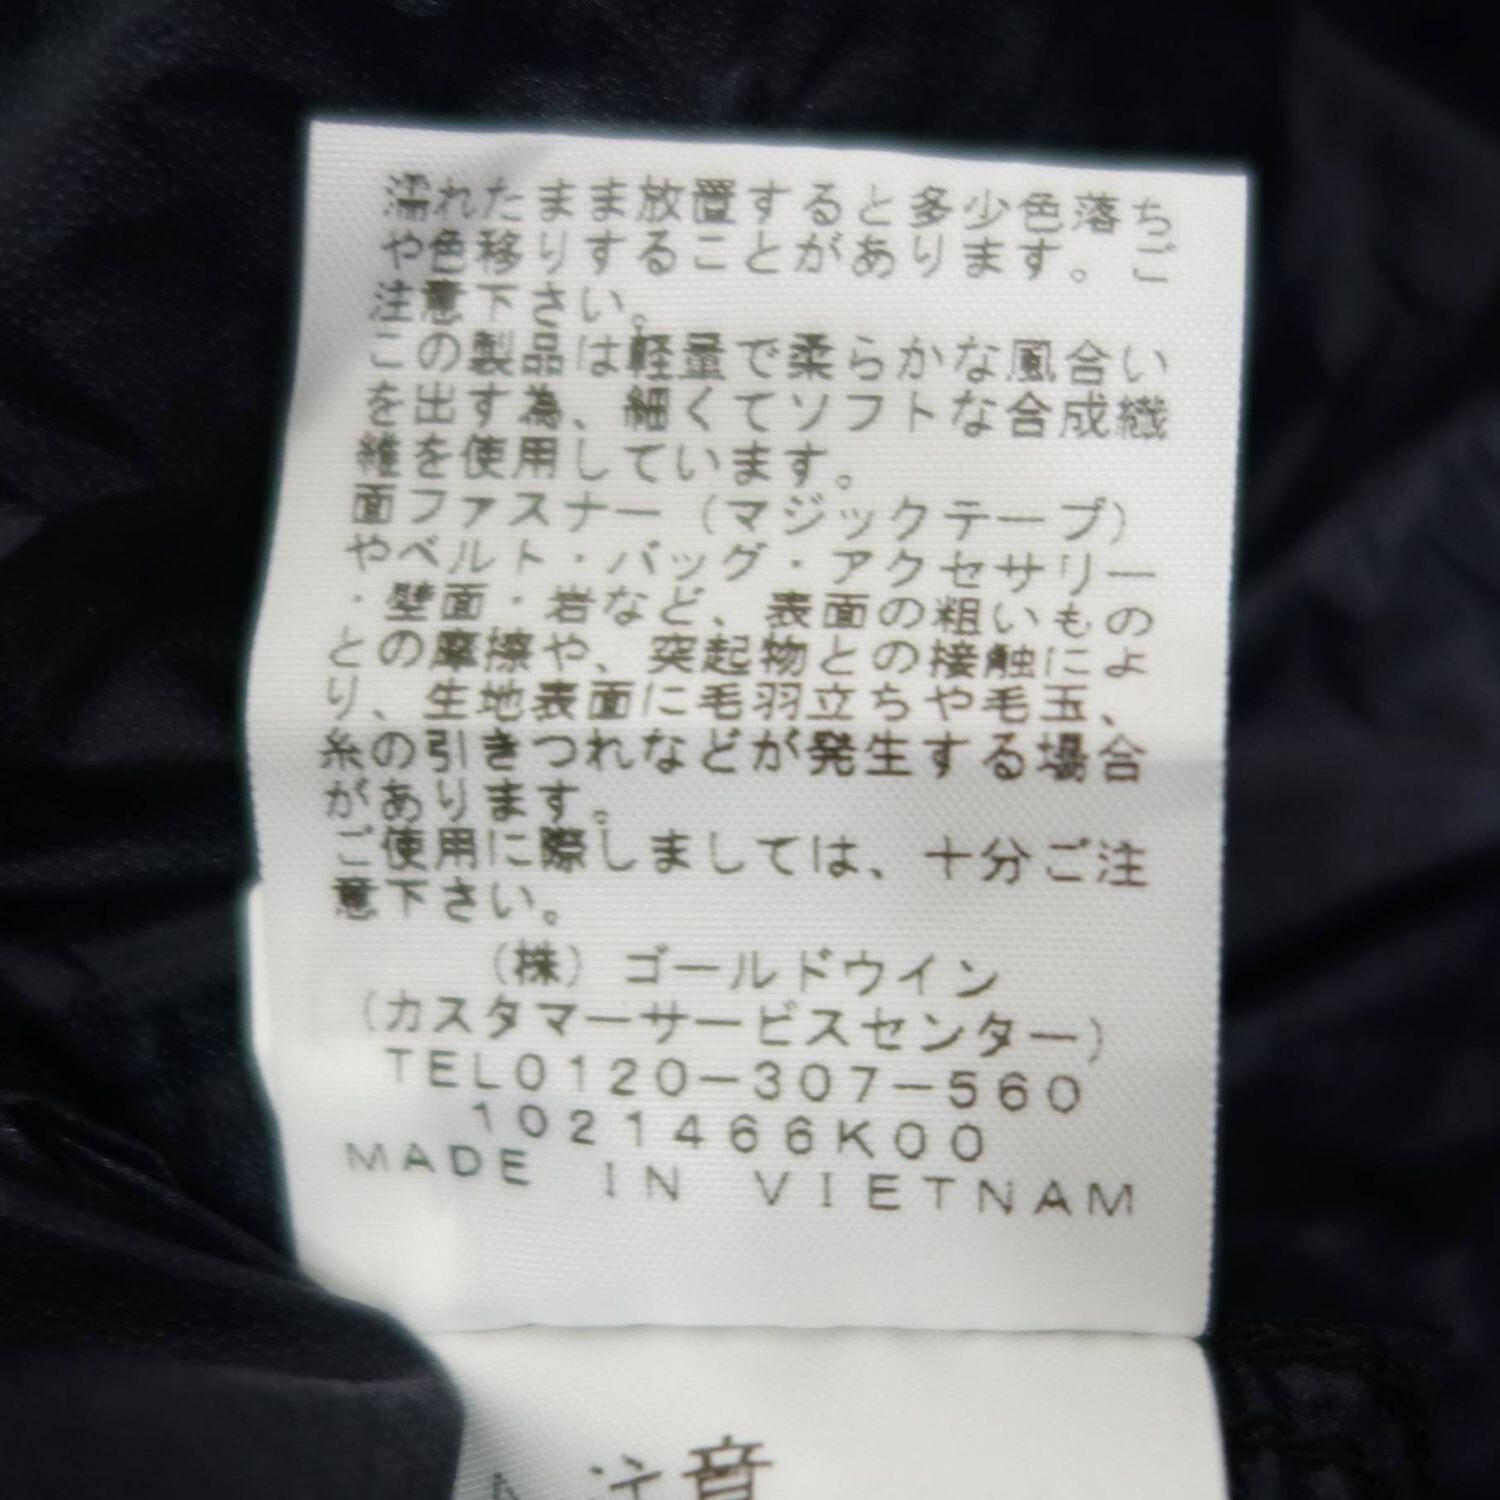 濡れたまま放置すると多少色落ち
や色移りすることがあります。ご
注意下さい。
この製品は軽量で柔らかな風合い
を出す為、細くてソフトな合成繊
維を使用しています。
面ファスナー（マジックテープ）
やベルト・バッグ・アクセサリー
・壁面・岩など、表面の粗いもの
との摩擦や、突起物との接触によ
り、生地表面に毛羽立ちや毛玉、
糸の引きつれなどが発生する場合
があります。
ご使用に際しましては、十分ご注
意下さい。
（株）ゴールドウイン
（カスタマーサービスセンター）
TEL0120-307-560
1021466K00
MADE IN VIETNAM
注意